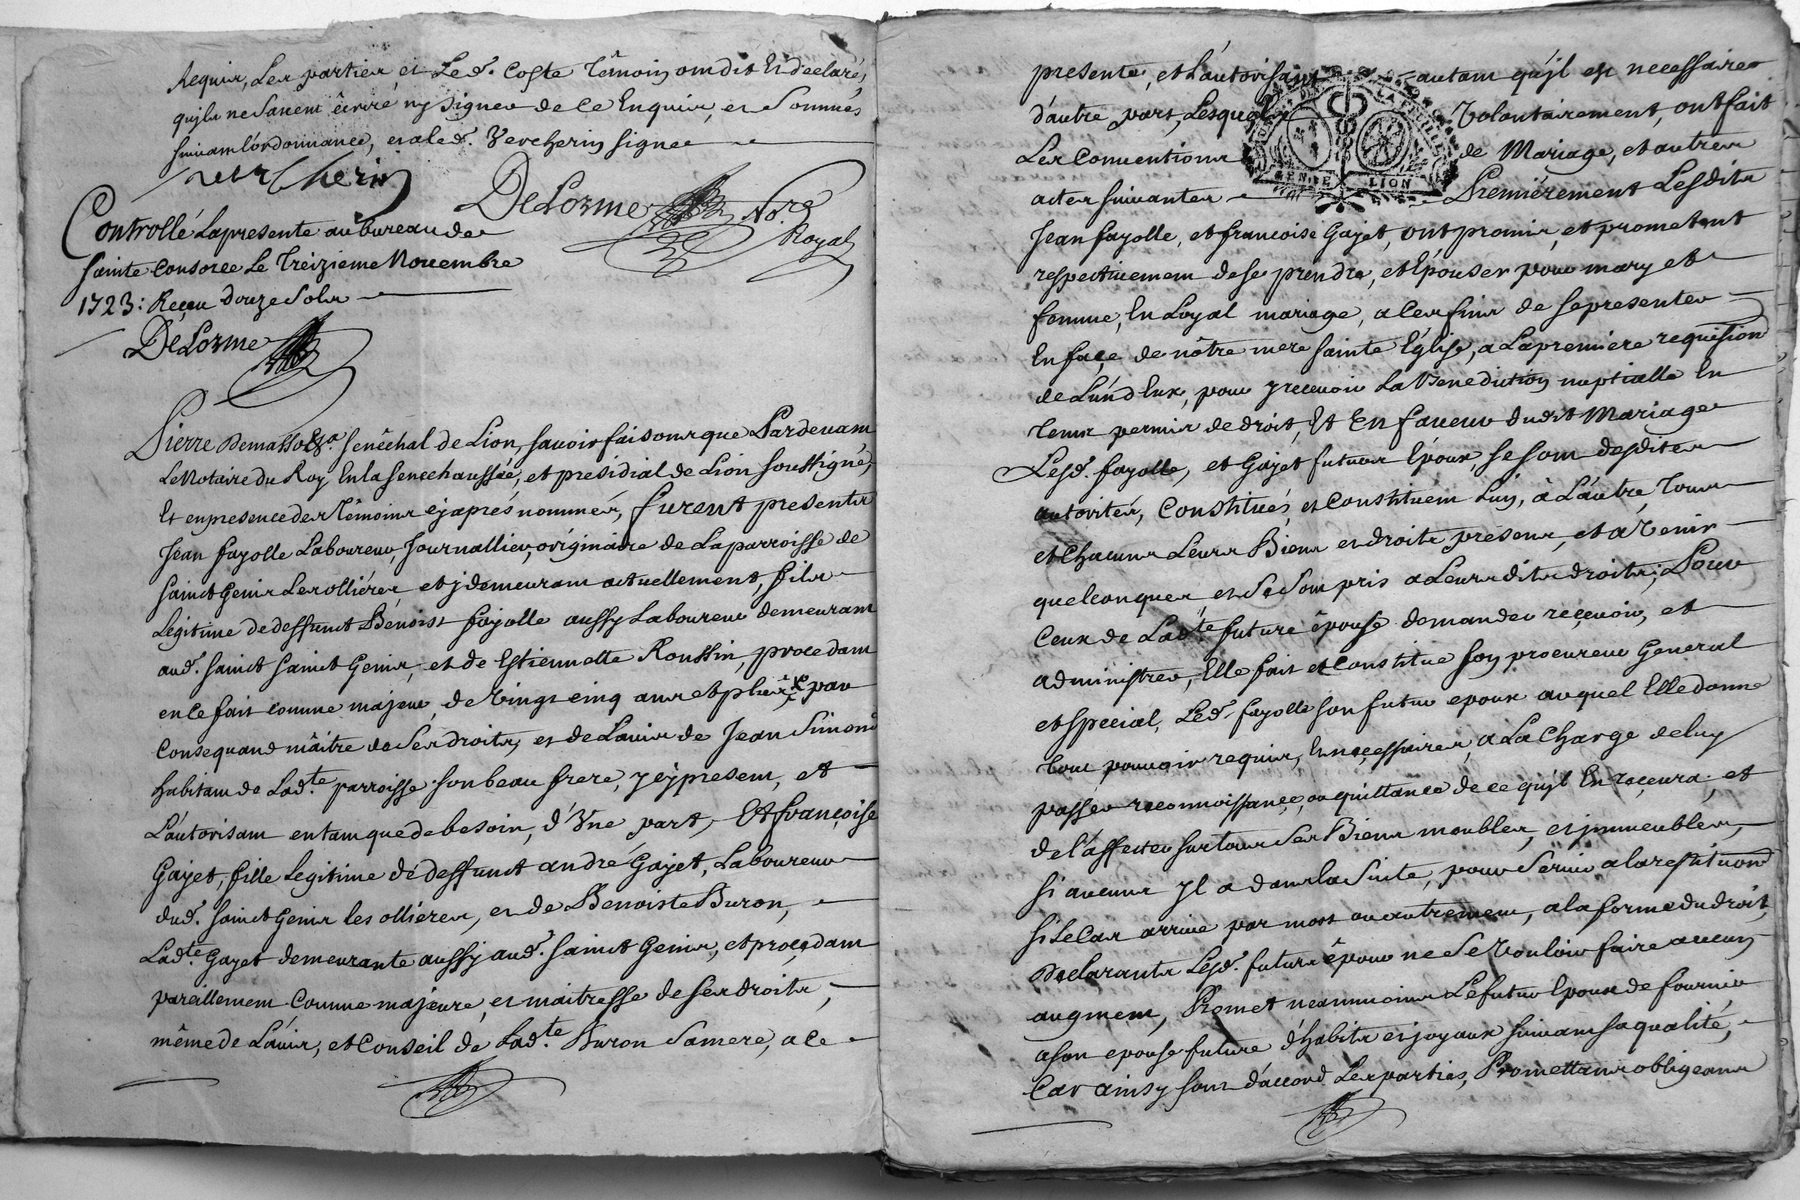 Requis, Les parties et Led. Coste têmoin ont dit Et declaré,
qu'jls ne Savent êcrire ny Signer de ce Enquis, et Sommés
suivant L'ordonnance, et a led. Vercherin signé
Vercherin
DeLorme No.re Royal
Controllé La presente au bureau de
sainte Consorce Le Treizieme Novembre
1723: Reçeu douze Sols
DeLorme
Pierre Demasso &a. Senêchal de Lion, savoir faisons que Pardevant
Le Notaire du Roy En la senechaussée, et presidial de Lion soussigné,
Et en presence des Têmoins cj aprés nommés, furent presents
Jean fayolle Laboureur, Journallier, originaire de La parroisse de
Sainct Genis Les olliéres, et j demeurant actuellement, fils
Legitime de deffunct Benoist fayolle aussy Laboureur demeurant
aud. sainct sainct Genis, et de Estiennette Roussin, procedant
en ce fait comme majeur, de Vingt cinq ans et plus, par
Consequand mâitre de Ses droits, et de L'avis de Jean Simond
habitant de Lad.te parroisse son beau frere, j cy present, et
L'autorisant en tant que de besoin, d'Vne part, Et françoise
Gayet, fille Legitime dé deffunct andré Gayet, Laboureur
dud. sainct Genis les olliéres, et de Benoiste Buron,
Lad.te Gayet demeurante aussy aud. sainct Genis, et procedant
pareillement Comme majeure, et maitresse de ses droits,
même de L'avis, et Conseil de Lad.te Buron Sa mere, a ce
presente, et L'autorisant autant qu'jl est necessaire
d'autre part, Lesquels Volontairement, ont fait
Les Conventions de Mariage, et autres
actes suivantes Premiérement Lesdits
GENER LION
Jean fayolle, et françoise Gayet, ont promis, et prometent
respectivement de se prendre, et Epouser pour mary et
femme, En Loyal mariage, a les fins de se presenter
En façe de nôtre mere sainte Église, a La premiere requisition
de L'un d'Eux, pour y recevoir La Benediction nuptialle En
Tems permis de droit, Et En faveur dudit Mariage
Lesd. fayolle, et Gayet futurs Epoux se sont desdites
autorités, Constitués, et Constituent L'un, â L'autre, Tous
et Chacuns Leurs Biens et droits presens, et a Venir
quelconques, et Se sont pris a Leurs dits droits; Pour
Ceux de Lad.te future êpouse demander reçevoir, et
administrer, Elle fait et Constitue son procureur General
et Special, Led. fayolle son futur epoux auquel Elle donne
Tout pouvoir requis, Et neçessaires, a La Charge de luy
passer reconnoissançe, ou quittance de ce qu'jl En reçevra; et
de l'affecter sur tous Ses Biens meubles, et jmmeubles,
si aucuns jl a dans la Suite, pour Servir a la restitution
si Le Cas arrive par mort ou autrement, a la forme du droit,
Declarants Lesd. futurs êpoux ne Se Vouloir faire aucun
augment, Promet neanmoins Le futur Epoux de fournir
a son epouse future d'habits et joyaux suivant sa qualité,
Car ainsy sont d'accord Les parties, Promettans obligeans